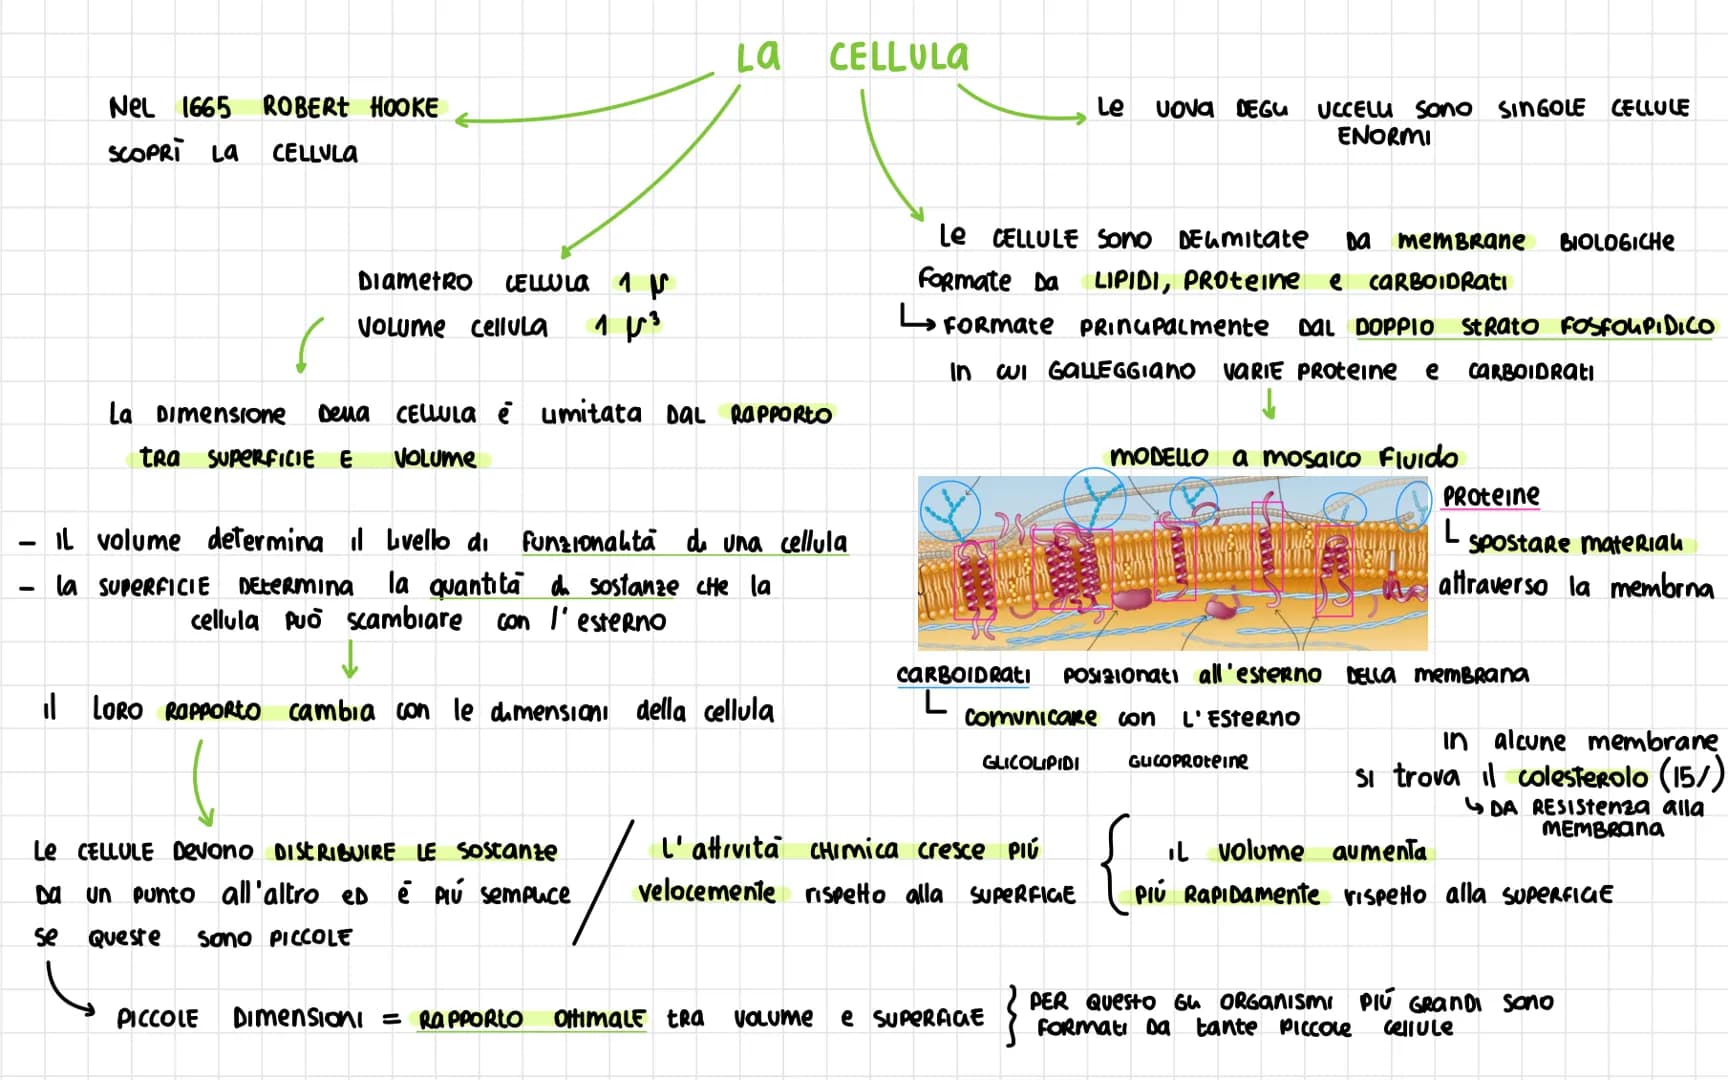 LA CELLULA
NEL 1665 ROBERT HOOKE
SCOPRÌ LA CELLULA
LE UOVA DEGLI UCCELLI SONO SINGOLE CELLULE
ENORMI
DIAMETRO CELLULA 1 μ
VOLUME CELLULA 1 μ³
LE CELLULE SONO DELIMITATE DA MEMBRANE BIOLOGICHE
FORMATE DA LIPIDI, PROTEINE E CARBOIDRATI
↳ FORMATE PRINCIPALMENTE DAL DOPPIO STRATO FOSFOLIPIDICO
IN CUI GALLEGGIANO VARIE PROTEINE E CARBOIDRATI
LA DIMENSIONE DELLA CELLULA È LIMITATA DAL RAPPORTO
TRA SUPERFICIE E VOLUME
MODELLO A MOSAICO FLUIDO
PROTEINE
SPOSTARE MATERIALI
attraverso la membrna
- IL volume determina il livello di funzionalità di una cellula
- la SUPERFICIE DETERMINA la quantità di sostanze CHE la
cellula PUÒ scambiare con l'ESTERNO
CARBOIDRATI POSIZIONATI all'ESTERNO DELLA MEMBRANA
COMUNICARE con L'ESTERNO
GLICOLIPIDI GLICOPROTEINE
il LORO RAPPORTO cambia con le dimensioni della cellula
In alcune membrane
si trova il colesterolo (15/)
↳ DA RESISTENZA alla
MEMBRANA
LE CELLULE DEVONO DISTRIBUIRE LE SOSTANZE
DA UN PUNTO all'altro ED È PIÚ SEMPLICE
SE QUESTE SONO PICCOLE
L'attività CHIMICA CRESCE PIÚ
velocemente rispetto alla SUPERFICIE
IL VOLUME AUMENTA
PIÚ RAPIDAMENTE rispetto alla SUPERFICIE
PICCOLE DIMENSIONI = RAPPORTO OTTIMALE TRA VOLUME E SUPERFICIE
PER QUESTO GLI ORGANISMI PIÚ GRANDI SONO
FORMATI DA TANTE PICCOLE CELLULE